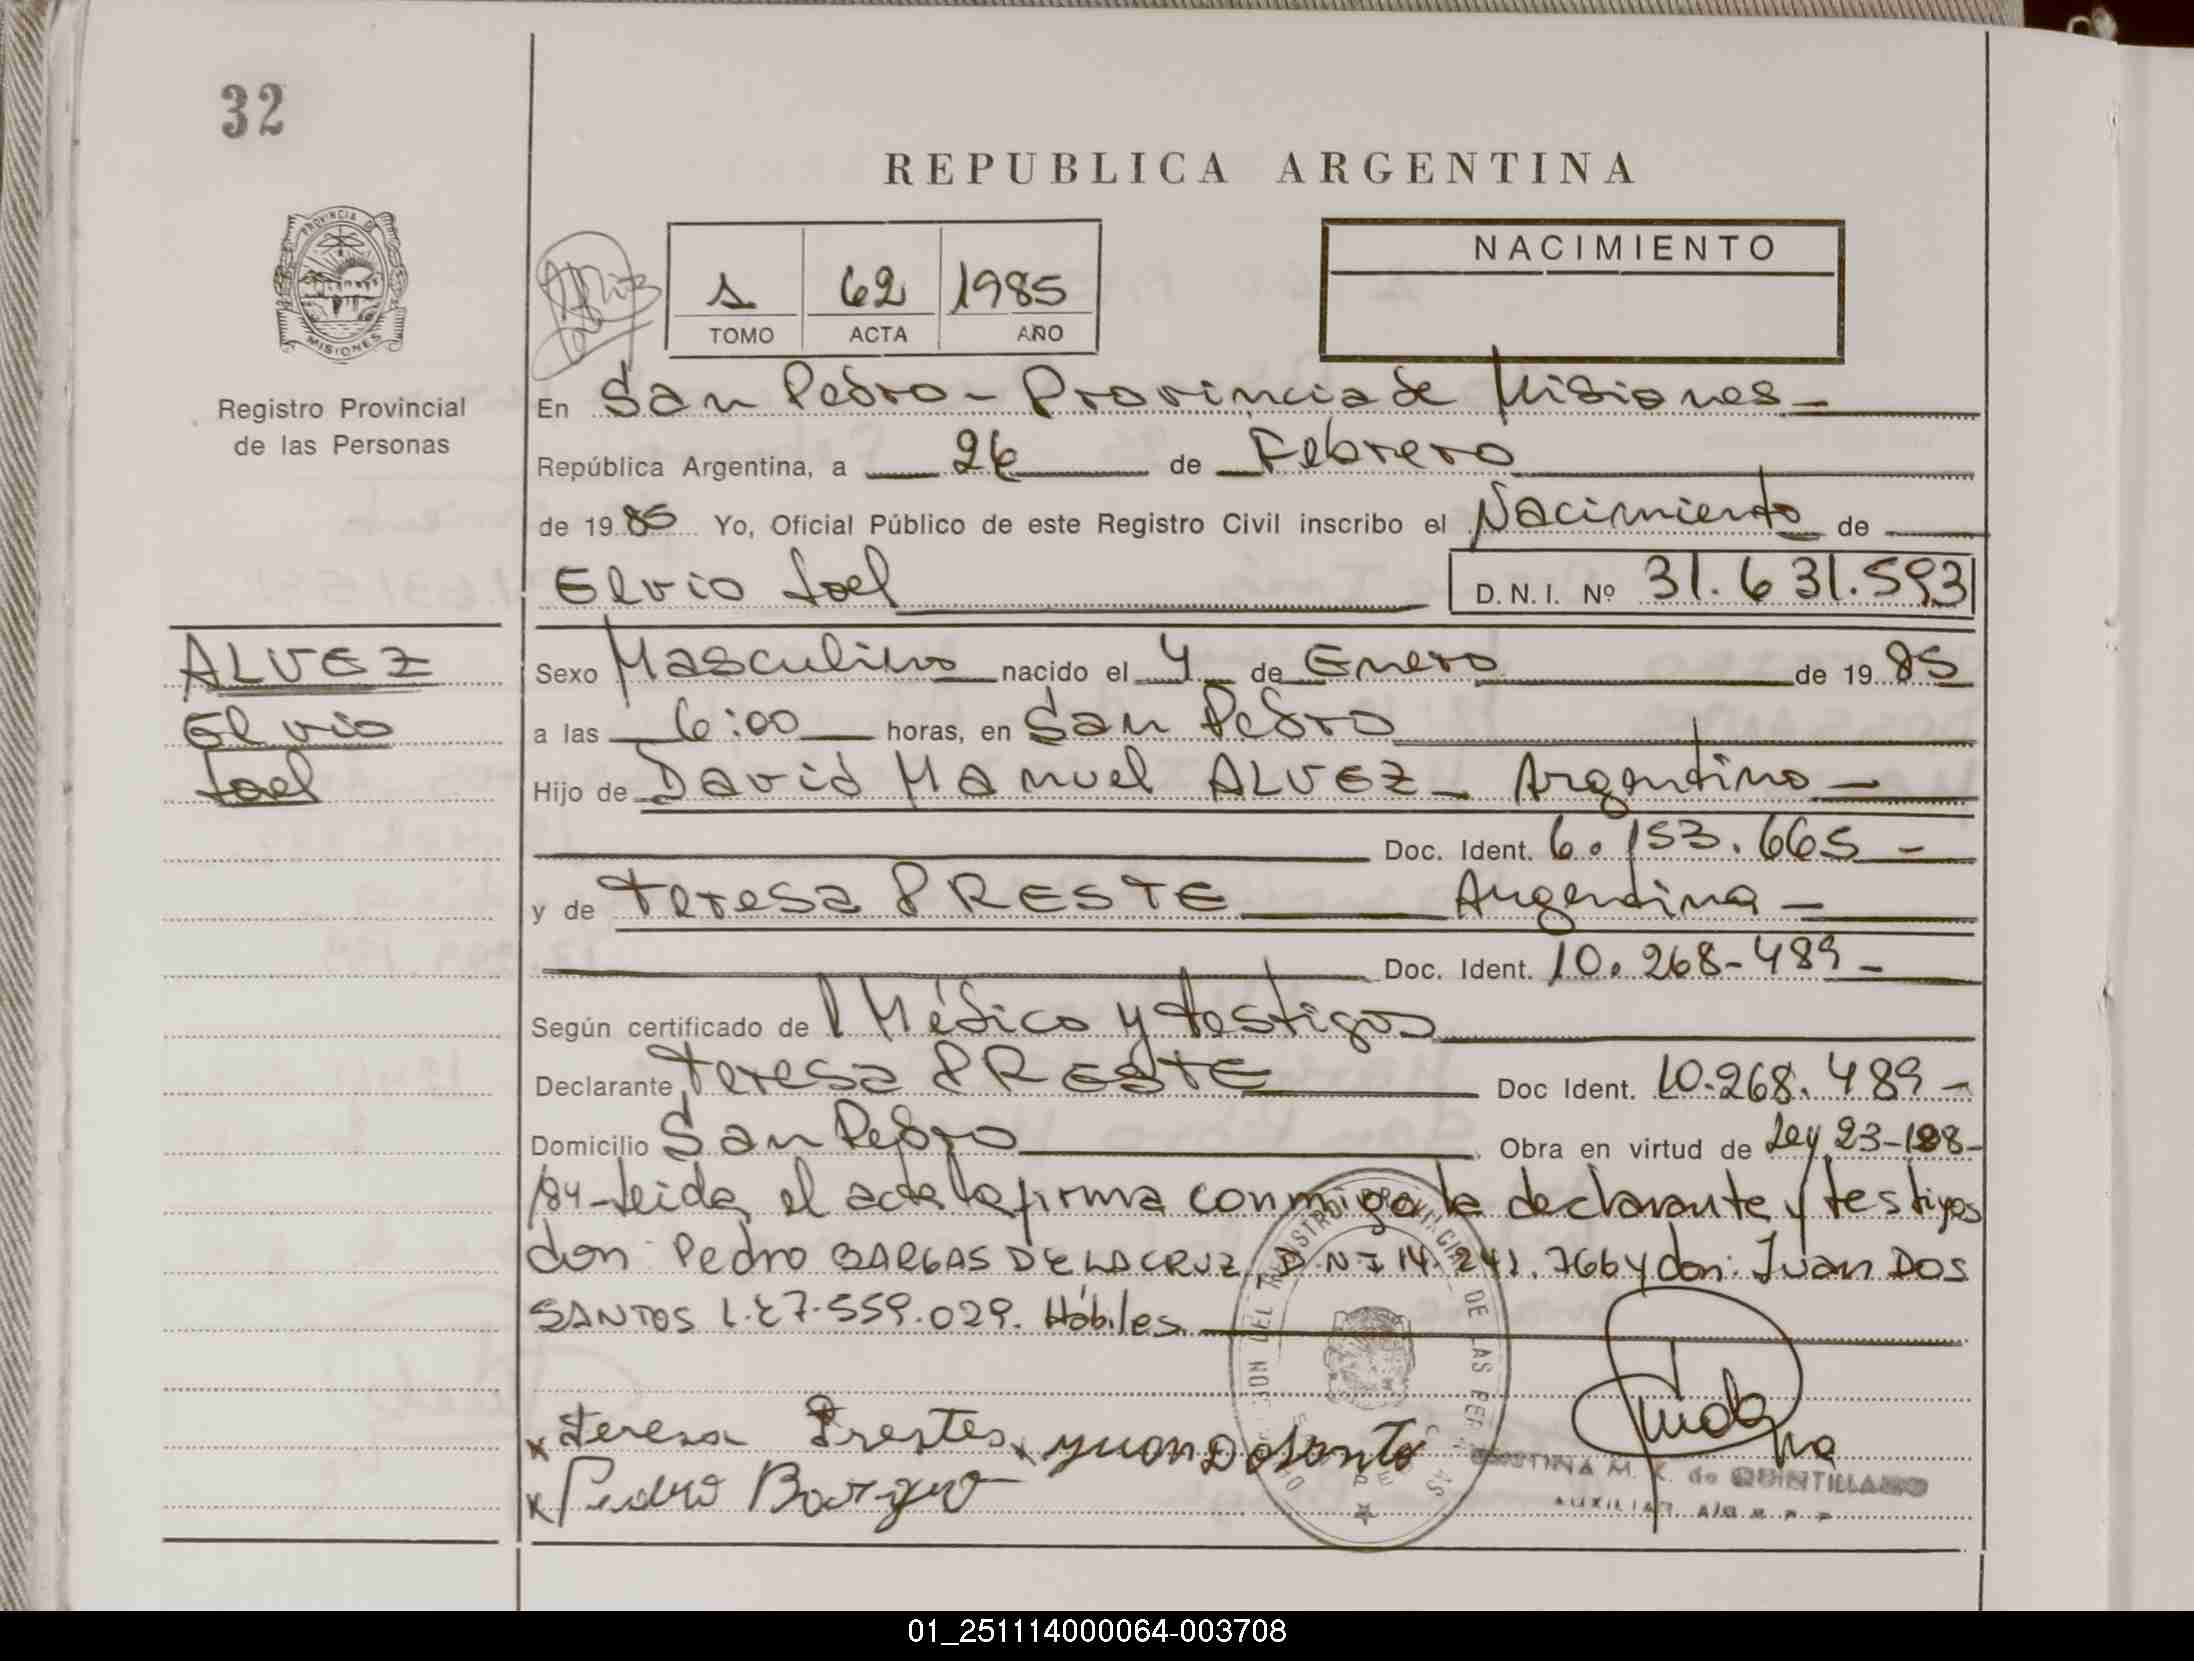 32
REPUBLICA ARGENTINA
PROVINCIA DE
MISIONES
Registro Provincial
de las Personas
1 62 1985
TOMO ACTA AÑO
NACIMIENTO
En San Pedro - Provincia de Misiones -
República Argentina, a 26 de Febrero
de 1985 Yo, Oficial Público de este Registro Civil inscribo el Nacimiento de
Elvio Joel D.N.I. Nº 31.631.593
ALVEZ
Elvio
Joel
Sexo Masculino nacido el 4 de Enero de 1985
a las 6:00 horas, en San Pedro
Hijo de David Manuel ALVEZ - Argentino -
Doc. Ident. 6.153.665 -
y de Teresa PRESTE Argentina -
Doc. Ident. 10.268-489 -
Según certificado de Médico y testigos
Declarante Teresa PRESTE Doc Ident. 10.268.489 -
Domicilio San Pedro Obra en virtud de Ley 23-188-
/84-leida el acta la firma conmigo la declarante y testigos
don Pedro BARGAS DE LA CRUZ D.N.I 14.241.766 y don: Juan DOS
SANTOS L.E 7.559.029. Hábiles.
x Teresa Prestes x Yuan Dosanto
x Pedro Bargas
M. K. de QUINTILLANO
AUXILIAR
01_251114000064-003708